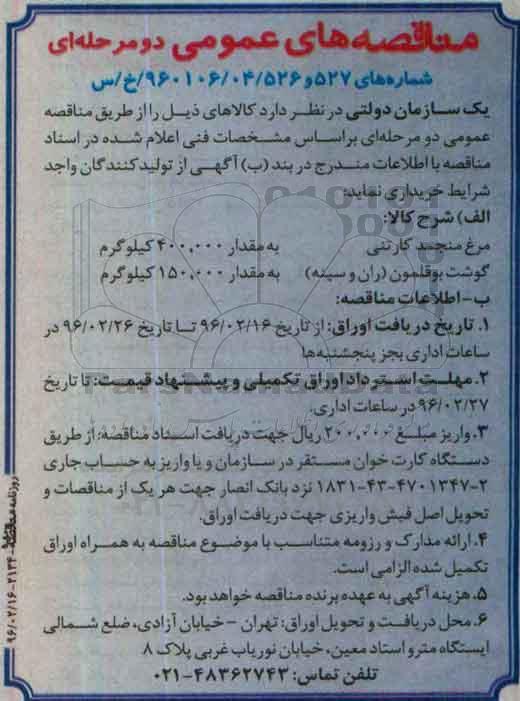 مناقصه‌های عمومی دو مرحله‌ای
شماره‌های ۵۲۷ و ۹۶۰۱۰۶/۰۴/۵۲۶/خ/س
یک سازمان دولتی در نظر دارد کالاهای ذیل را از طریق مناقصه
عمومی دو مرحله‌ای براساس مشخصات فنی اعلام شده در اسناد
مناقصه با اطلاعات مندرج در بند (ب) آگهی از تولیدکنندگان واجد
شرایط خریداری نماید:
الف) شرح کالا:
مرغ منجمد کارتنی به مقدار ۴۰۰,۰۰۰ کیلوگرم
گوشت بوقلمون (ران و سینه) به مقدار ۱۵۰,۰۰۰ کیلوگرم
ب- اطلاعات مناقصه:
۱. تاریخ دریافت اوراق: از تاریخ ۹۶/۰۲/۱۶ تا تاریخ ۹۶/۰۲/۲۶ در
ساعات اداری بجز پنجشنبه‌ها
۲. مهلت استرداد اوراق تکمیلی و پیشنهاد قیمت: تا تاریخ
۹۶/۰۲/۲۷ در ساعات اداری.
۳. واریز مبلغ ۲۰۰,۰۰۰ ریال جهت دریافت اسناد مناقصه، از طریق
دستگاه کارت خوان مستقر در سازمان و یا واریز به حساب جاری
۱۸۳۱-۴۳-۴۷۰۱۳۴۷-۲ نزد بانک انصار جهت هر یک از مناقصات و
تحویل اصل فیش واریزی جهت دریافت اوراق.
۴. ارائه مدارک و رزومه متناسب با موضوع مناقصه به همراه اوراق
تکمیل شده الزامی است.
۵. هزینه آگهی به عهده برنده مناقصه خواهد بود.
۶. محل دریافت و تحویل اوراق: تهران - خیابان آزادی، ضلع شمالی
ایستگاه مترو استاد معین، خیابان نوریاب غربی پلاک ۸
تلفن تماس: ۴۸۳۶۲۷۴۳-۰۲۱
روزنامه مناقصه ۲۱۳۴-۹۶/۰۲/۱۶